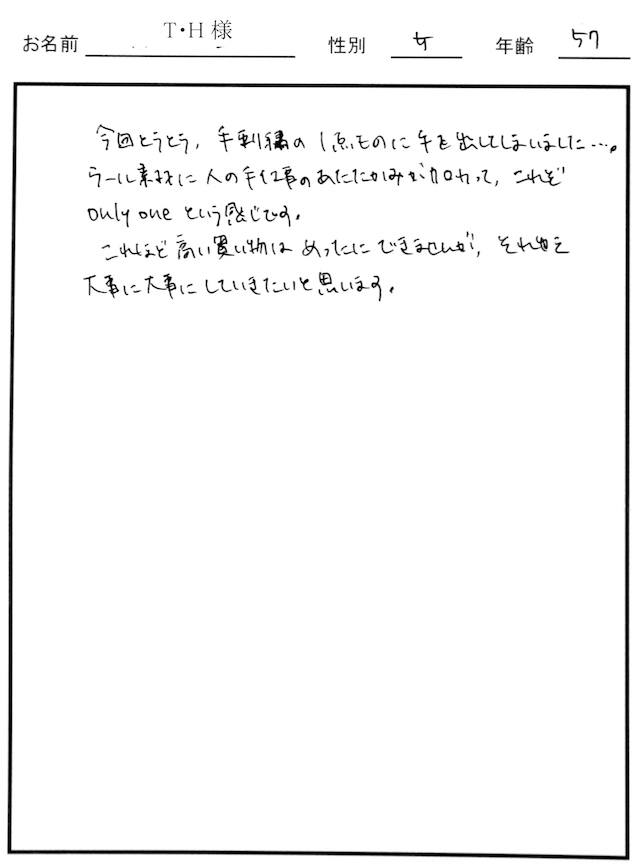 お名前 T・H 様 性別 女 年齢 57
今回とうとう、手刺繍の1点ものに手を出してしまいました…。
ウール素材に人の手仕事のあたたかみが加わって、これぞ
only one という感じです。
これほど高い買い物はめったにできませんが、それゆえ
大事に大事にしていきたいと思います。